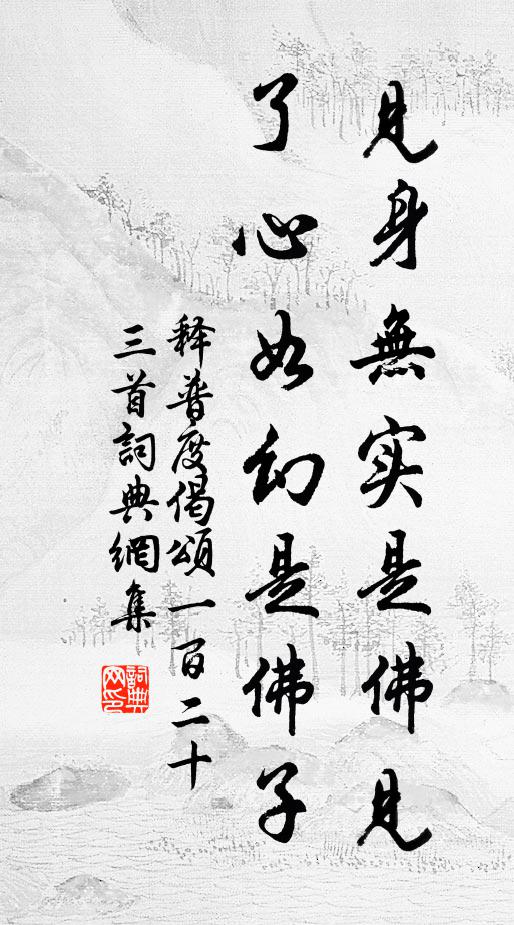 見身無实是佛見
了心如幻是佛子
释普度偈頌一百二十
三首詞典網集
詞典
网印